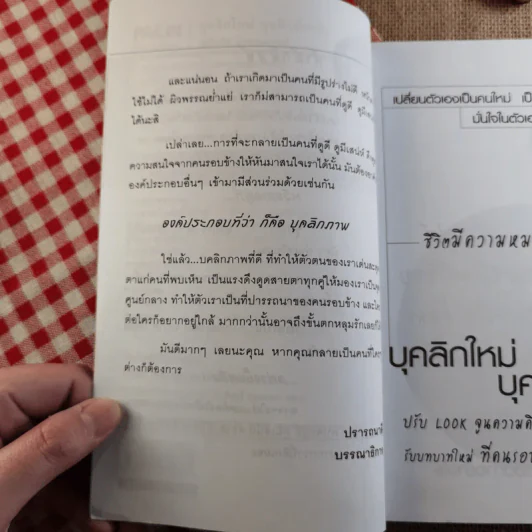 และแน่นอน ถ้าเราเกิดมาเป็นคนที่มีรูปร่างไม่ดี
ใช้ไม่ได้ ผิวพรรณย่ำแย่ เราก็ไม่สามารถเป็นคนที่ดูดี
ได้นะสิ
เปล่าเลย...การที่จะกลายเป็นคนที่ดูดี ดูมีเสน่ห์
ความสนใจจากคนรอบข้างให้หันมาสนใจเราได้นั้น มันต้อง
องค์ประกอบอื่นๆ เข้ามามีส่วนร่วมด้วยเช่นกัน
องค์ประกอบที่ว่า ก็คือ บุคลิกภาพ
ใช่แล้ว...บุคลิกภาพที่ดี ที่ทำให้ตัวตนของเราเด่นสะดุด
ตาแก่คนที่พบเห็น เป็นแรงดึงดูดสายตาทุกคู่ให้มองเราเป็น
ศูนย์กลาง ทำให้ตัวเราเป็นที่ปรารถนาของคนรอบข้าง และ
ต่อใครก็อยากอยู่ใกล้ มากกว่านั้นอาจถึงขั้นตกหลุมรักเลย
มันดีมากๆ เลยนะคุณ หากคุณกลายเป็นคนที่ใคร
ต่างก็ต้องการ
ปรารถนา
บรรณาธิการ
เปลี่ยนตัวเองเป็นคนใหม่
มั่นใจในตัว
ชีวิตมีความ
บุคลิกใหม่
ปรับ LOOK จูนความคิ
รับบทบาทใหม่ ที่คนรอ